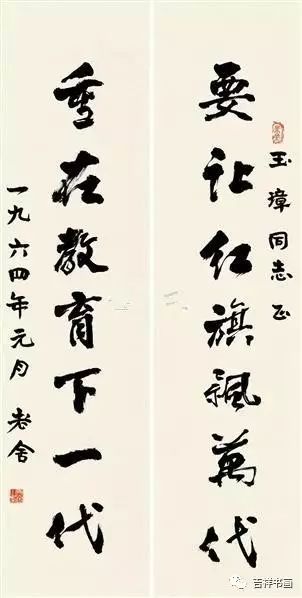 玉璋同志正
要让红旗飘萬代
重在教育下一代
一九六四年元月 老舍
吉祥书画